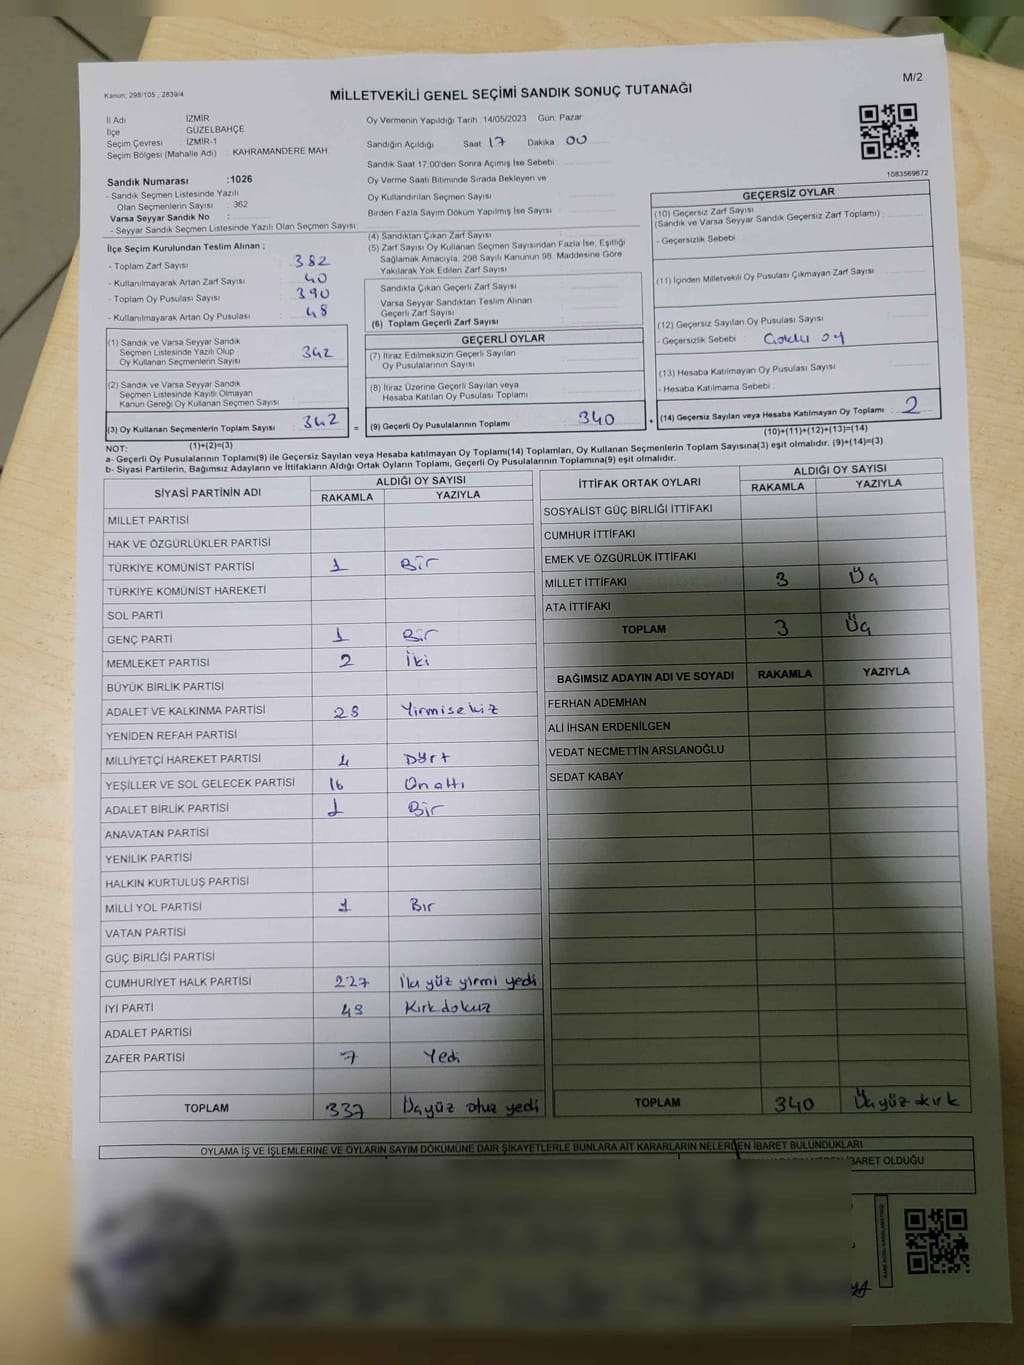 Kanun; 298/105 , 2839/4
MİLLETVEKİLİ GENEL SEÇİMİ SANDIK SONUÇ TUTANAĞI
M/2
İl Adı İZMİR
İlçe GÜZELBAHÇE
Seçim Çevresi : İZMİR-1
Seçim Bölgesi (Mahalle Adı) : KAHRAMANDERE MAH.
Oy Vermenin Yapıldığı Tarih :14/05/2023 Gün: Pazar
Sandığın Açıldığı Saat 17 Dakika 00
Sandık Saat 17.00'den Sonra Açımış İse Sebebi :
Sandık Numarası :1026
- Sandık Seçmen Listesinde Yazılı
Olan Seçmenlerin Sayısı : 362
Varsa Seyyar Sandık No :
- Seyyar Sandık Seçmen Listesinde Yazılı Olan Seçmen Sayısı:
Oy Verme Saati Bitiminde Sırada Bekleyen ve
Oy Kullandırılan Seçmen Sayısı
Birden Fazla Sayım Döküm Yapılmış İse Sayısı :
1083569872
İlçe Seçim Kurulundan Teslim Alınan ;
- Toplam Zarf Sayısı : 382
- Kullanılmayarak Artan Zarf Sayısı : 40
- Toplam Oy Pusulası Sayısı : 390
- Kullanılmayarak Artan Oy Pusulası : 48
(1) Sandık ve Varsa Seyyar Sandık
Seçmen Listesinde Yazılı Olup
Oy Kullanan Seçmenlerin Sayısı 342
(2) Sandık ve Varsa Seyyar Sandık
Seçmen Listesinde Kayıtlı Olmayan
Kanun Gereği Oy Kullanan Seçmen Sayısı
(3) Oy Kullanan Seçmenlerin Toplam Sayısı : 342 =
(1)+(2)=(3)
(4) Sandıktan Çıkan Zarf Sayısı
(5) Zarf Sayısı Oy Kullanan Seçmen Sayısından Fazla İse, Eşitliği
Sağlamak Amacıyla, 298 Sayılı Kanunun 98. Maddesine Göre
Yakılarak Yok Edilen Zarf Sayısı
Sandıkta Çıkan Geçerli Zarf Sayısı
Varsa Seyyar Sandıktan Teslim Alınan
Geçerli Zarf Sayısı
(6) Toplam Geçerli Zarf Sayısı
GEÇERLİ OYLAR
(7) İtiraz Edilmeksizin Geçerli Sayılan
Oy Pusulalarının Sayısı
(8) İtiraz Üzerine Geçerli Sayılan veya
Hesaba Katılan Oy Pusulası Toplamı
(9) Geçerli Oy Pusulalarının Toplamı : 340 +
GEÇERSİZ OYLAR
(10) Geçersiz Zarf Sayısı
(Sandık ve Varsa Seyyar Sandık Geçersiz Zarf Toplamı) :
- Geçersizlik Sebebi
(11) İçinden Milletvekili Oy Pusulası Çıkmayan Zarf Sayısı
(12) Geçersiz Sayılan Oy Pusulası Sayısı
- Geçersizlik Sebebi : oy
(13) Hesaba Katılmayan Oy Pusulası Sayısı
- Hesaba Katılmama Sebebi
(14) Geçersiz Sayılan veya Hesaba Katılmayan Oy Toplamı : 2
(10)+(11)+(12)+(13)=(14)
NOT:
a- Geçerli Oy Pusulalarının Toplamı(9) ile Geçersiz Sayılan veya Hesaba katılmayan Oy Toplamı(14) Toplamları, Oy Kullanan Seçmenlerin Toplam Sayısına(3) eşit olmalıdır. (9)+(14)=(3)
b- Siyasi Partilerin, Bağımsız Adayların ve İttifakların Aldığı Ortak Oyların Toplamı, Geçerli Oy Pusulalarının Toplamına(9) eşit olmalıdır.
SİYASİ PARTİNİN ADI ALDIĞI OY SAYISI
RAKAMLA YAZIYLA
MİLLET PARTİSİ
HAK VE ÖZGÜRLÜKLER PARTİSİ
TÜRKİYE KOMÜNİST PARTİSİ 1 Bir
TÜRKİYE KOMÜNİST HAREKETİ
SOL PARTİ
GENÇ PARTİ 1 Bir
MEMLEKET PARTİSİ 2 İki
BÜYÜK BİRLİK PARTİSİ
ADALET VE KALKINMA PARTİSİ 28 Yirmisekiz
YENİDEN REFAH PARTİSİ
MİLLİYETÇİ HAREKET PARTİSİ 4 Dört
YEŞİLLER VE SOL GELECEK PARTİSİ 16 Onaltı
ADALET BİRLİK PARTİSİ 1 Bir
ANAVATAN PARTİSİ
YENİLİK PARTİSİ
HALKIN KURTULUŞ PARTİSİ
MİLLİ YOL PARTİSİ 1 Bir
VATAN PARTİSİ
GÜÇ BİRLİĞİ PARTİSİ
CUMHURİYET HALK PARTİSİ 227 İki yüz yirmi yedi
İYİ PARTİ 49 Kırkdokuz
ADALET PARTİSİ
ZAFER PARTİSİ 7 Yedi
TOPLAM 337 Üçyüz otuz yedi
İTTİFAK ORTAK OYLARI ALDIĞI OY SAYISI
RAKAMLA YAZIYLA
SOSYALİST GÜÇ BİRLİĞİ İTTİFAKI
CUMHUR İTTİFAKI
EMEK VE ÖZGÜRLÜK İTTİFAKI
MİLLET İTTİFAKI 3 Üç
ATA İTTİFAKI
TOPLAM 3 Üç
BAĞIMSIZ ADAYIN ADI VE SOYADI RAKAMLA YAZIYLA
FERHAN ADEMHAN
ALİ İHSAN ERDENİLGEN
VEDAT NECMETTİN ARSLANOĞLU
SEDAT KABAY
TOPLAM 340 Üçyüz kırk
OYLAMA İŞ VE İŞLEMLERİNE VE OYLARIN SAYIM DÖKÜMÜNE DAİR ŞİKAYETLERLE BUNLARA AİT KARARLARIN NELERDEN İBARET BULUNDUKLARI
İBARET OLDUĞU